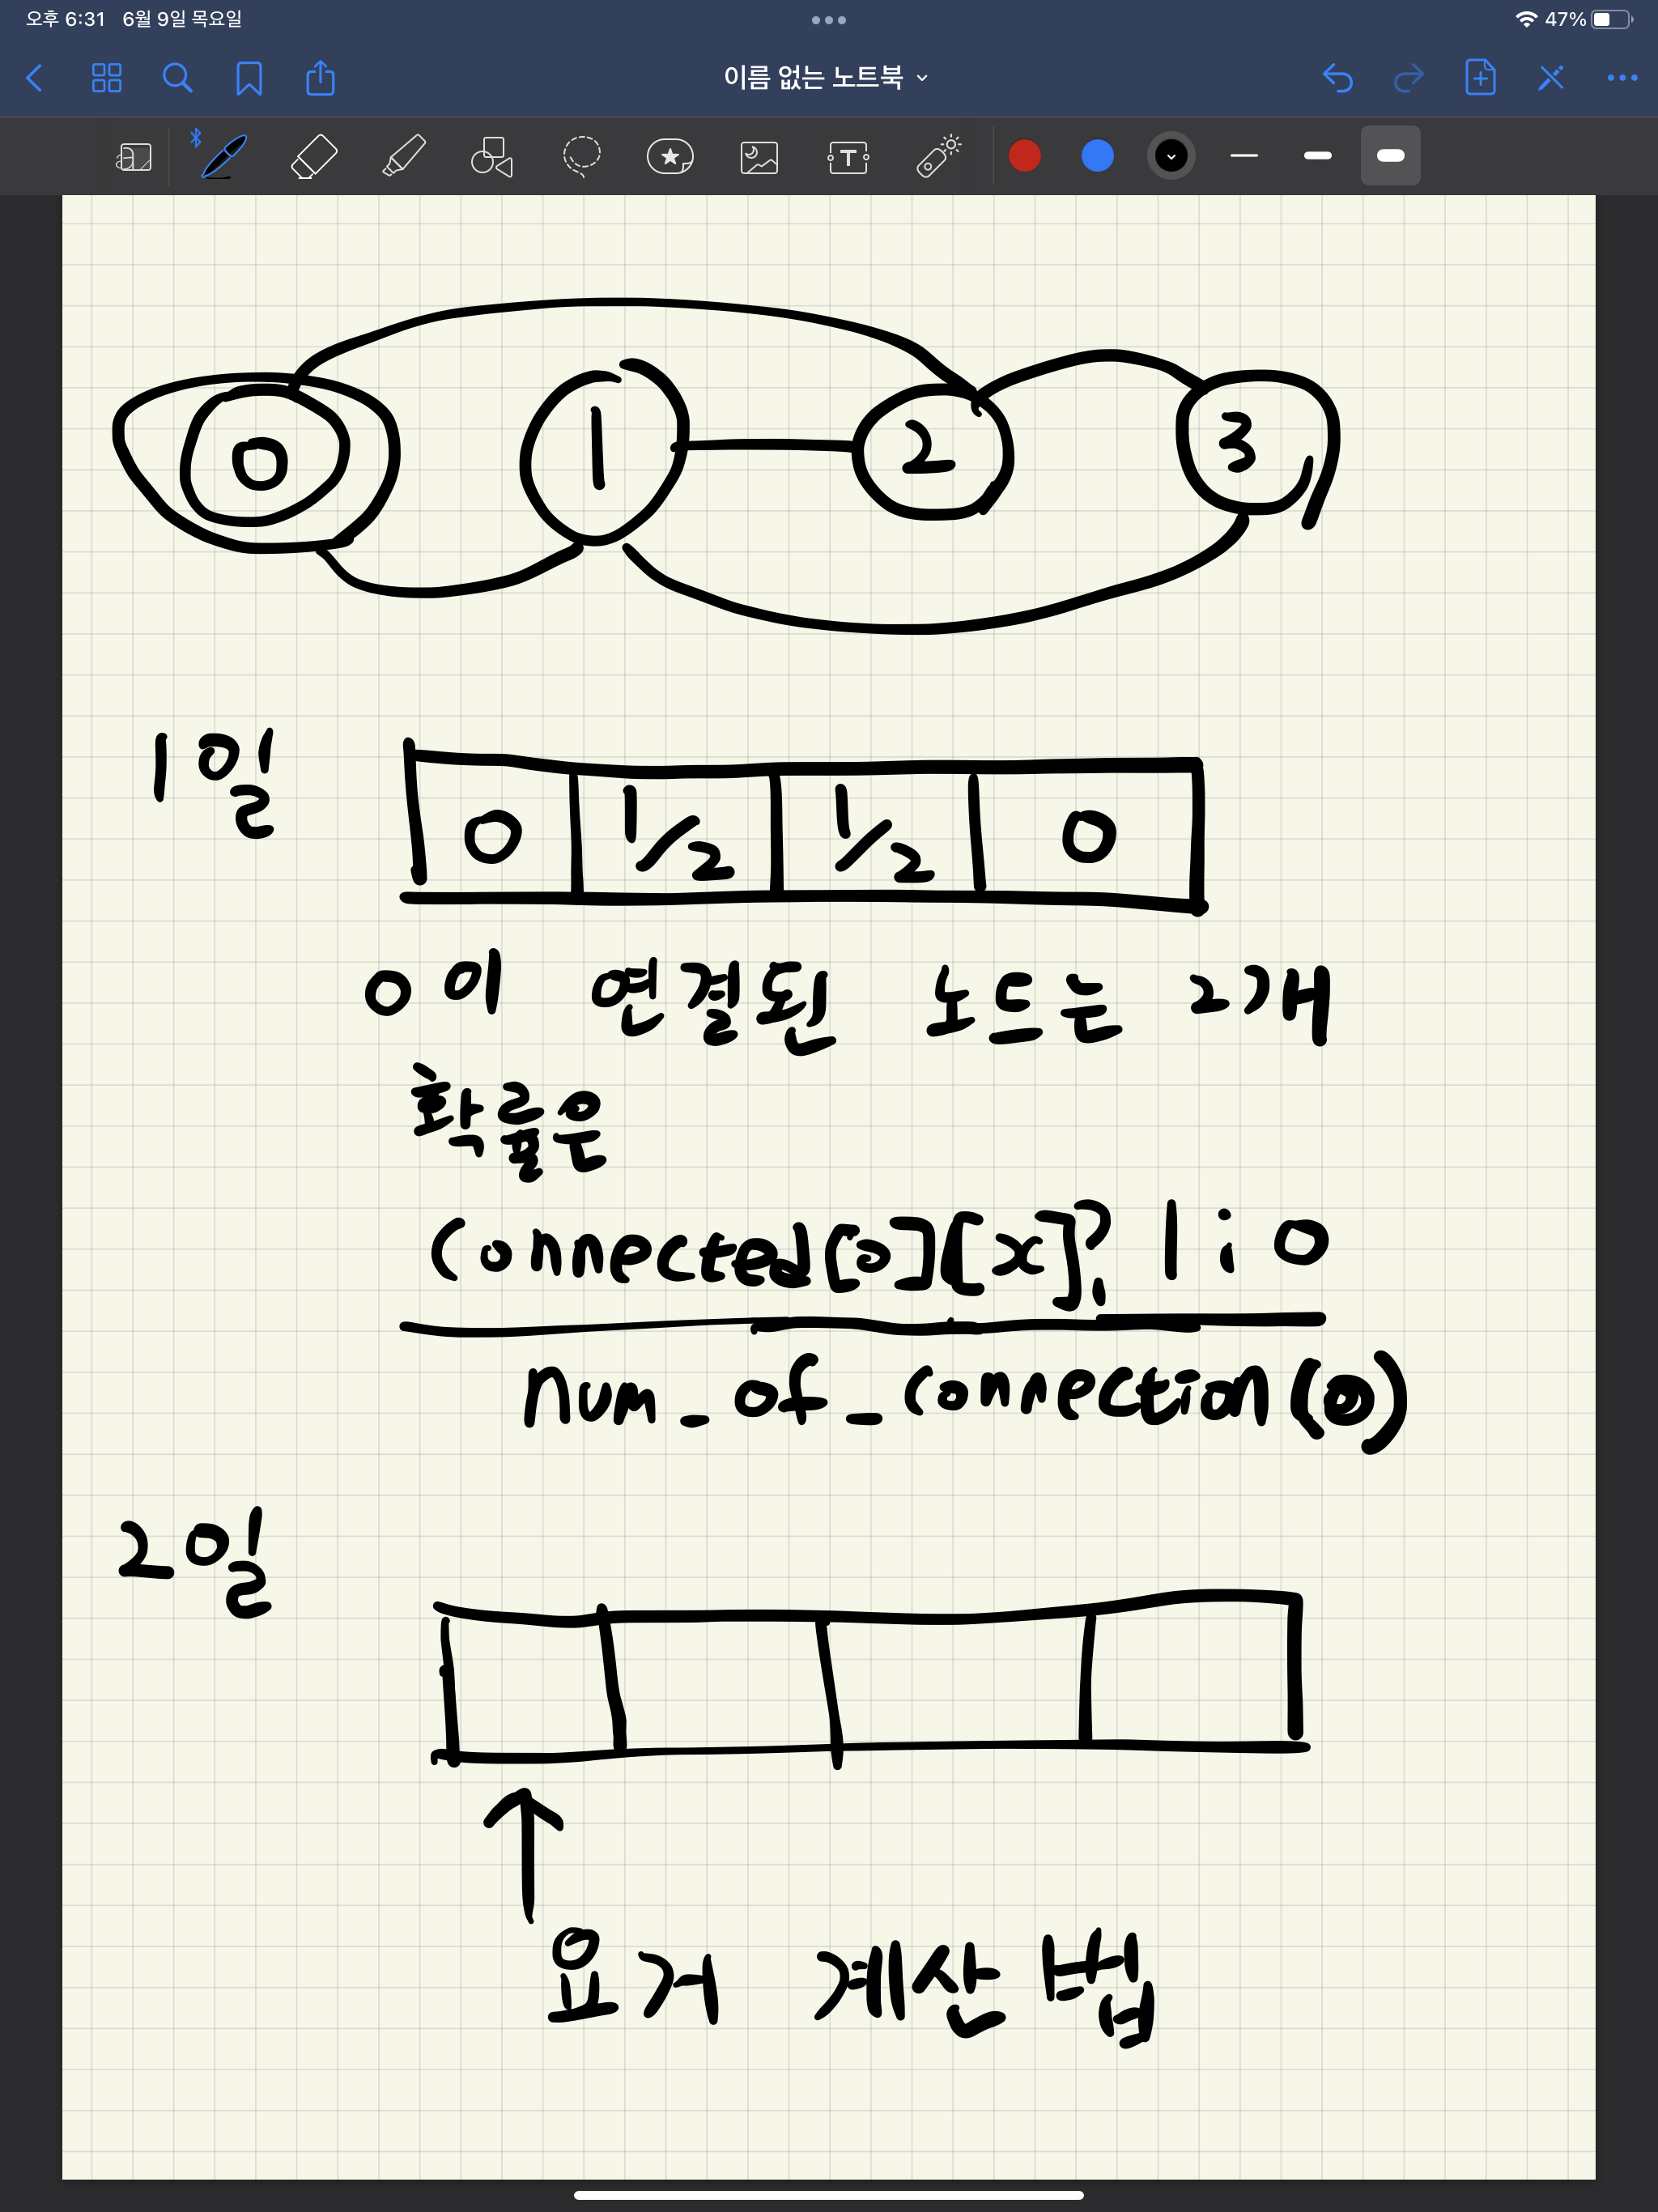 오후 6:31 6월 9일 목요일
47%
이름 없는 노트북
T
0 1 2 3
1일
0 1/2 1/2 0
0이 연결된 노드는 2개
확률은
connected[0][x]? 1 : 0
num_of_connection(0)
2일
요거 계산법